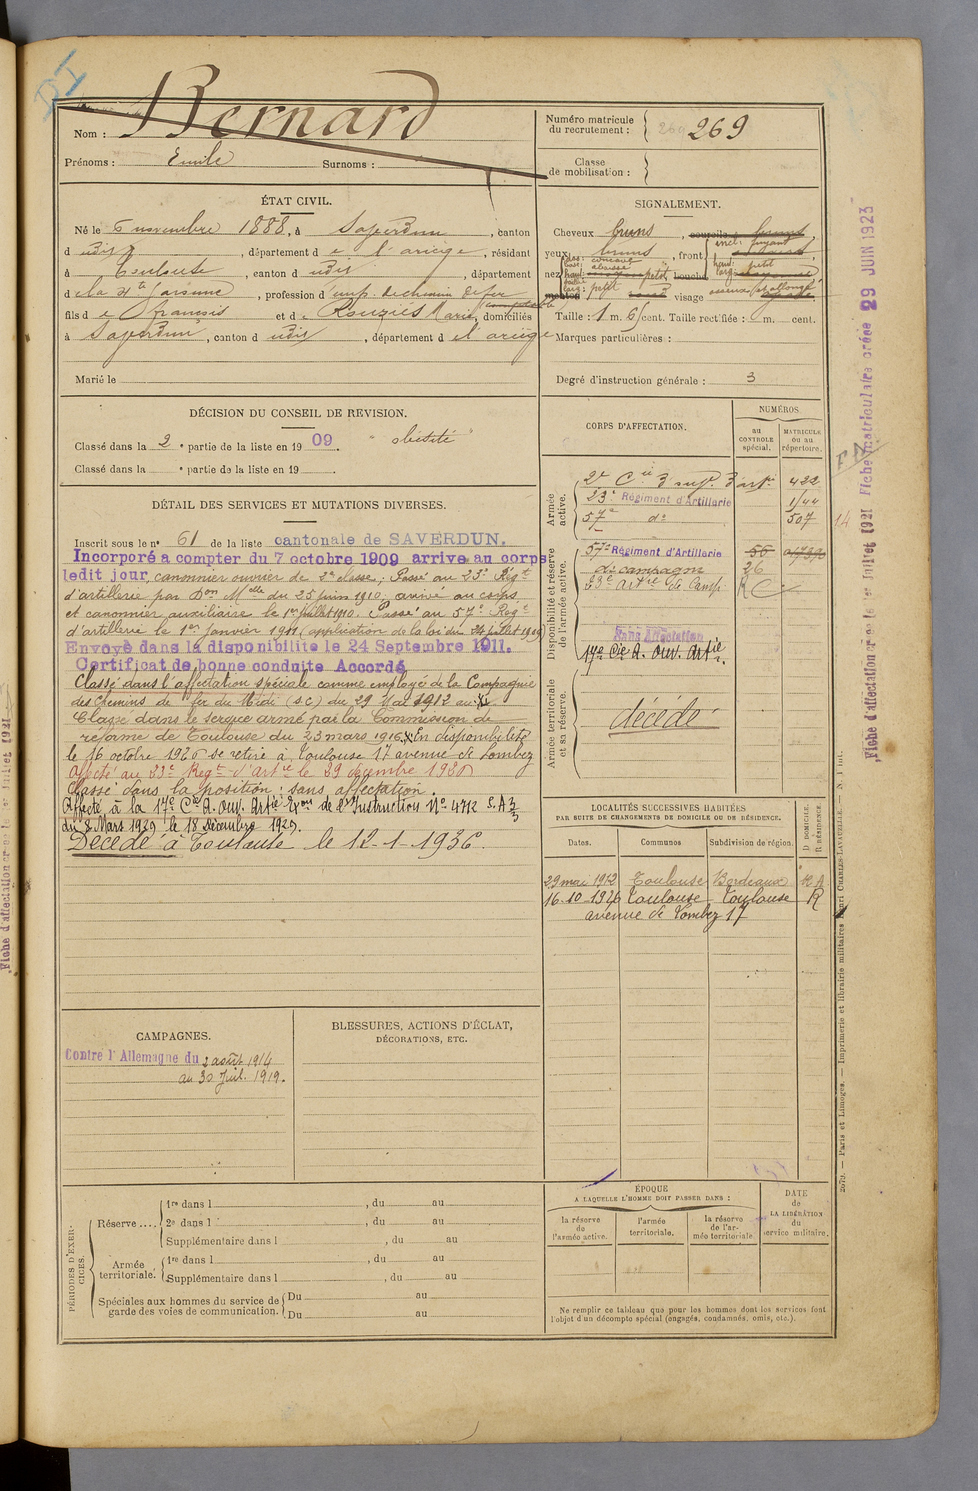 DI
Nom : Bernard
Prénoms : Emile Surnoms :
Numéro matricule du recrutement : 269
Classe de mobilisation :
ÉTAT CIVIL.
Né le 6 novembre 1888, à Saverdun, canton
d udit, département de l'ariège, résidant
à Toulouse, canton d udit, département
d e la Hte Garonne, profession d'emp. de chemin de fer
(comptable
fils de François et de Rouziès Marie, domiciliés
à Saverdun, canton d udit, département d e l'ariège
Marié le
SIGNALEMENT.
Cheveux bruns, sourcils bruns
yeux bruns, front
nez petit bouche
menton visage
Taille : 1 m. 6 cent. Taille rectifiée : m. cent.
Marques particulières :
Degré d'instruction générale : 3
DÉCISION DU CONSEIL DE REVISION.
Classé dans la 2e partie de la liste en 1909. "obésité"
Classé dans la e partie de la liste en 19 .
DÉTAIL DES SERVICES ET MUTATIONS DIVERSES.
Inscrit sous le n° 61 de la liste cantonale de SAVERDUN.
Incorporé a compter du 7 octobre 1909 arrivé au corps
ledit jour, canonnier ouvrier de 2e classe; Passé au 23e Régt
d'artillerie par Don Mlle du 25 juin 1910, arrivé au corps
et canonnier auxiliaire le 1er Juillet 1910. Passé au 57e Regt
d'artillerie le 1er Janvier 1911 (application de la loi du 24 juillet 1909)
Envoyé dans la disponibilité le 24 Septembre 1911.
Certificat de bonne conduite Accordé
Classé dans l'affectation spéciale comme employé de la Compagnie
des Chemins de fer du Midi (s.c) du 29 Mai 1912 au
Classé dans le service armé par la Commission de
réforme de Toulouse du 23 mars 1916. En disponibilité
le 16 octobre 1926 se retire à Toulouse 17 avenue de Lombez
Affecté au Regt d'Artie le 29 décembre 1926
Classé dans la position : sans affectation.
Affecté à la 17e Cie A. Ouv. Artie Exon de l'Instruction No 4712 S.A 3/3
du 8 Mars 1929 le 18 Décembre 1929.
Décédé à Toulouse le 12-1-1936.
CORPS D'AFFECTATION.
NUMÉROS
au CONTROLE spécial.
MATRICULE ou au répertoire.
Armée active.
2e Cie 3 artie 422
23e Régiment d'Artillerie 1/44
57e do 507
Disponibilité et réserve de l'armée active.
57e Régiment d'Artillerie 56
de campagne 26
Artie de Camp. R C
Sans Affectation
17e Cie A. Ouv. Artie.
Armée territoriale et sa réserve.
décédé
LOCALITÉS SUCCESSIVES HABITÉES
PAR SUITE DE CHANGEMENTS DE DOMICILE OU DE RÉSIDENCE.
Dates. Communes Subdivision de région. D DOMICILE. R RÉSIDENCE.
29 mai 1912 Toulouse Bordeaux
16-10-1926 Toulouse Toulouse R
avenue de Lombez 17
CAMPAGNES.
Contre l'Allemagne du 2 août 1914
au 30 Juil. 1919.
BLESSURES, ACTIONS D'ÉCLAT,
DÉCORATIONS, ETC.
PÉRIODES D'EXERCICES.
Réserve ....
1re dans l , du au
2e dans l , du au
Supplémentaire dans l , du au
Armée territoriale.
1re dans l , du au
Supplémentaire dans l , du au
Spéciales aux hommes du service de garde des voies de communication.
Du au
Du au
ÉPOQUE
A LAQUELLE L'HOMME DOIT PASSER DANS :
la réserve de l'armée active.
l'armée territoriale.
la réserve de l'armée territoriale.
DATE de LA LIBÉRATION du service militaire.
Ne remplir ce tableau que pour les hommes dont les services font
l'objet d'un décompte spécial (engagés, condamnés, omis, etc.).
Fiche matriculaire créée 29 JUIN 1923
Paris et Limoges. — Imprimerie et librairie militaires Henri CHARLES-LAVAUZELLE.